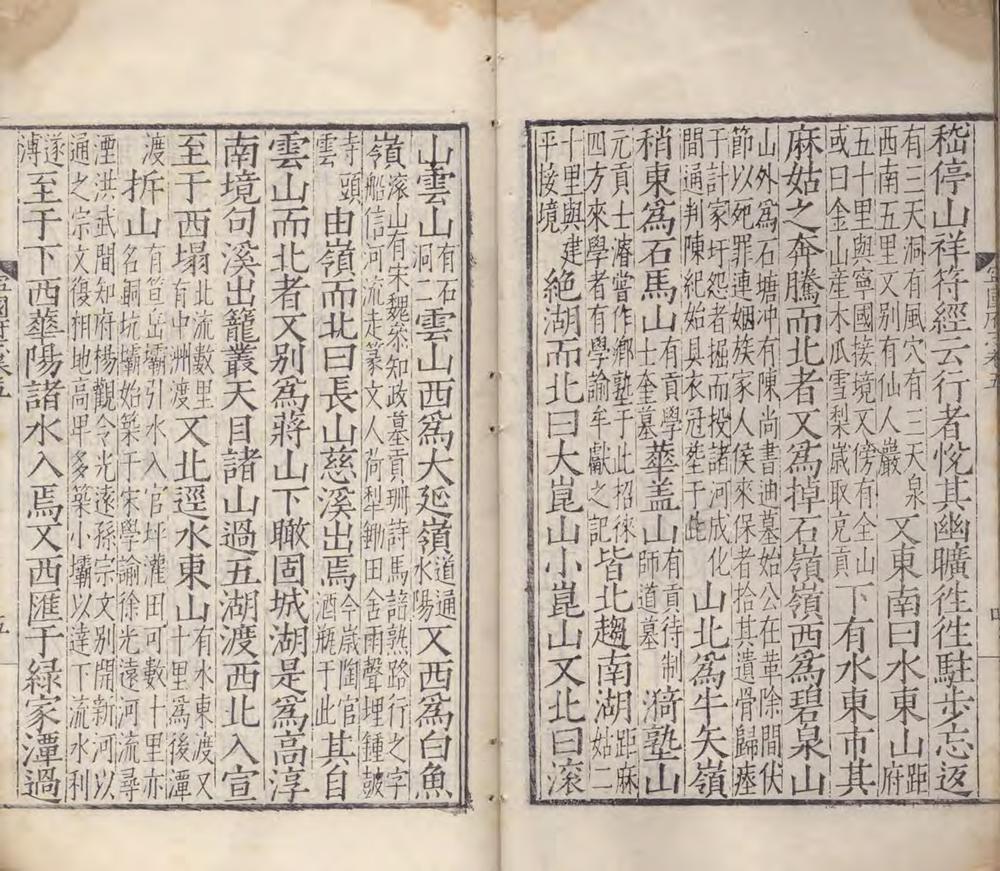 嵇停山祥符經云行者悅其幽曠徃徃駐步忘返
有三天洞有風穴有三天泉
西南五里又别有仙人巖
又東南曰水東山
距
府
五十里與寧國接境又傍有全山
或曰金山產木瓜雪梨歲取充貢
下有水東市其
麻姑之奔騰而北者又為掉石嶺嶺西為碧泉山
山外為石塘冲有陳尚書迪墓始公在革除間伏
節以死罪連姻族家人侯來保者拾其遺骨歸瘞
于計家圩怨者掘而投諸河成化
間通判陳紀始具衣冠塟于此
山北為牛矢嶺
稍東為石馬山
有貢學
士奎墓
華盖山
有貢待制
師道墓
漪塾山
元貢士濬嘗作鄉塾于此招徠
四方來學者有學諭牟巘之記
皆北趨南湖
距麻
姑二
十里與建
平接境
絶湖而北曰大崑山小崑山又北曰滚
山雲山
有石
洞二
雲山西為大延嶺
道通
水陽
又西為白魚
嶺
滚山有宋魏叅知政墓貢珊詩馬諳熟路行之字
嶺船信河流走篆文人荷犁鋤田舍雨聲埋鍾皷
寺頭
雲
由嶺而北曰長山慈溪出焉
今歲陶官
酒瓶于此
其自
雲山而北者又别為蔣山下瞰固城湖是為高淳
南境句溪出籠叢天目諸山過五湖渡西北入宣
至于西塌
北流數里
有中洲渡
又北逕水東山
有水東渡又
十里為後潭
渡
拆山
有笪岳壩引水入官坪灌田可數十里亦
名銅坑壩始築于宋學諭徐光遠河流尋
湮洪武間知府楊觀令光遠孫宗文别開新河以
通之宗文復相地高卑多築小壩以達下流水利
遂
溥
至于下西華陽諸水入焉又西匯于綠家潭過